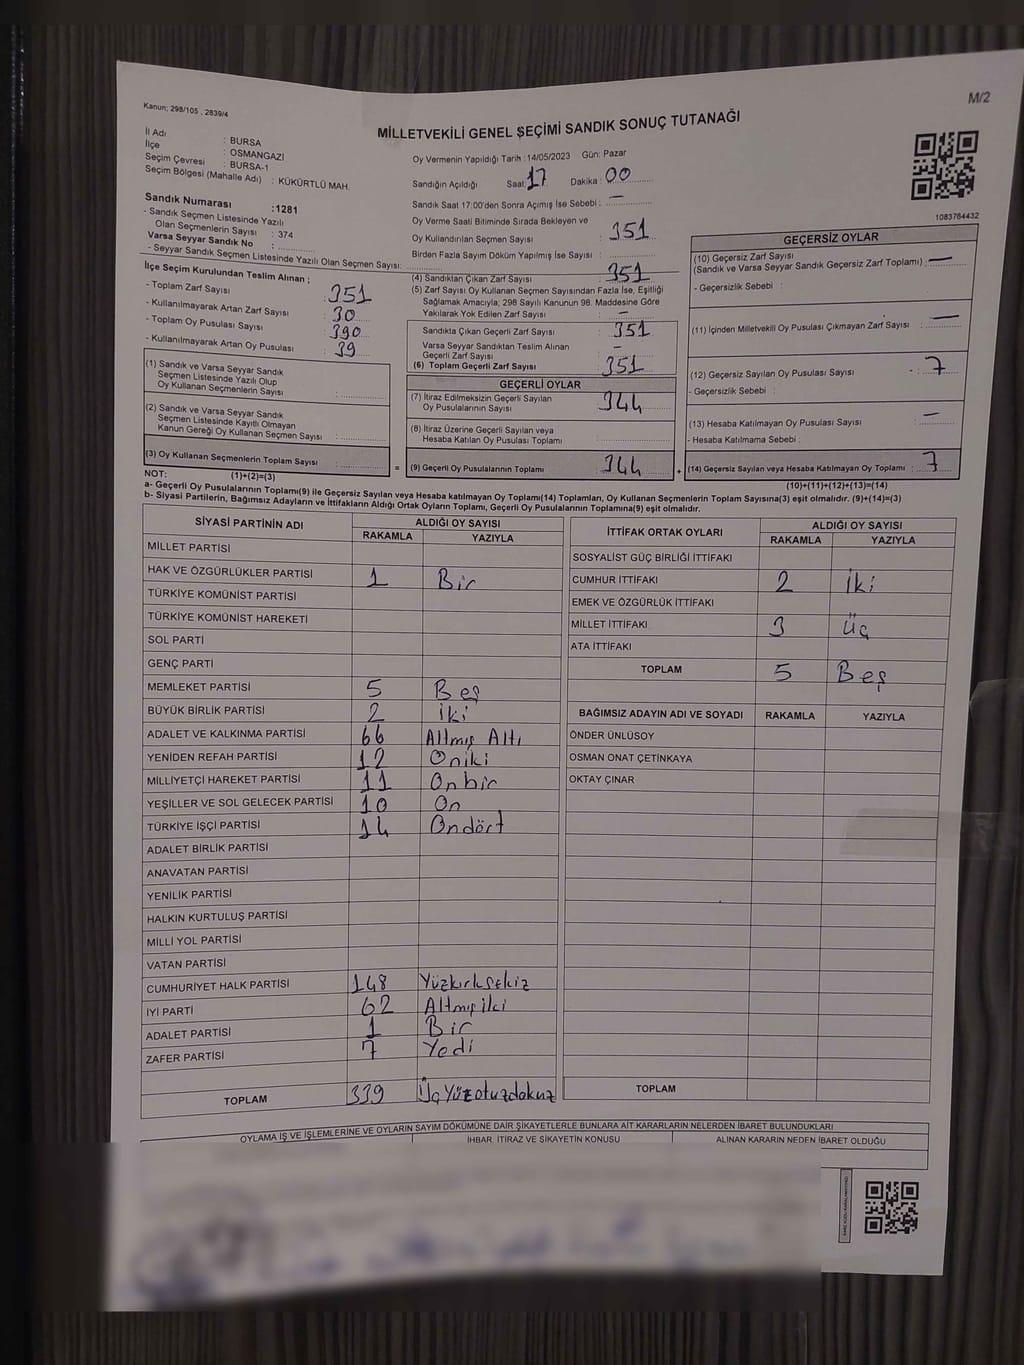 Kanun; 298/105 , 2839/4
M/2
MİLLETVEKİLİ GENEL SEÇİMİ SANDIK SONUÇ TUTANAĞI
İl Adı : BURSA
İlçe : OSMANGAZİ
Seçim Çevresi : BURSA-1
Seçim Bölgesi (Mahalle Adı) : KÜKÜRTLÜ MAH.
Sandık Numarası :1281
- Sandık Seçmen Listesinde Yazılı
Olan Seçmenlerin Sayısı : 374
Varsa Seyyar Sandık No :
- Seyyar Sandık Seçmen Listesinde Yazılı Olan Seçmen Sayısı:
İlçe Seçim Kurulundan Teslim Alınan ;
- Toplam Zarf Sayısı : 351
- Kullanılmayarak Artan Zarf Sayısı : 30
- Toplam Oy Pusulası Sayısı : 390
- Kullanılmayarak Artan Oy Pusulası : 39
(1) Sandık ve Varsa Seyyar Sandık
Seçmen Listesinde Yazılı Olup
Oy Kullanan Seçmenlerin Sayısı :
(2) Sandık ve Varsa Seyyar Sandık
Seçmen Listesinde Kayıtlı Olmayan
Kanun Gereği Oy Kullanan Seçmen Sayısı :
(3) Oy Kullanan Seçmenlerin Toplam Sayısı :
(1)+(2)=(3)
Oy Vermenin Yapıldığı Tarih :14/05/2023 Gün: Pazar
Sandığın Açıldığı Saat: 17 Dakika : 00
Sandık Saat 17:00'den Sonra Açımış İse Sebebi : —
Oy Verme Saati Bitiminde Sırada Bekleyen ve
Oy Kullandırılan Seçmen Sayısı : 351
Birden Fazla Sayım Döküm Yapılmış İse Sayısı : —
(4) Sandıktan Çıkan Zarf Sayısı : 351
(5) Zarf Sayısı Oy Kullanan Seçmen Sayısından Fazla İse, Eşitliği
Sağlamak Amacıyla; 298 Sayılı Kanunun 98. Maddesine Göre
Yakılarak Yok Edilen Zarf Sayısı : —
Sandıkta Çıkan Geçerli Zarf Sayısı : 351
Varsa Seyyar Sandıktan Teslim Alınan
Geçerli Zarf Sayısı : —
(6) Toplam Geçerli Zarf Sayısı : 351
GEÇERLİ OYLAR
(7) İtiraz Edilmeksizin Geçerli Sayılan
Oy Pusulalarının Sayısı : 344
(8) İtiraz Üzerine Geçerli Sayılan veya
Hesaba Katılan Oy Pusulası Toplamı :
= (9) Geçerli Oy Pusulalarının Toplamı : 344
1083764432
GEÇERSİZ OYLAR
(10) Geçersiz Zarf Sayısı
(Sandık ve Varsa Seyyar Sandık Geçersiz Zarf Toplamı) : —
- Geçersizlik Sebebi :
(11) İçinden Milletvekili Oy Pusulası Çıkmayan Zarf Sayısı : —
(12) Geçersiz Sayılan Oy Pusulası Sayısı : 7
- Geçersizlik Sebebi :
(13) Hesaba Katılmayan Oy Pusulası Sayısı : —
- Hesaba Katılmama Sebebi :
+ (14) Geçersiz Sayılan veya Hesaba Katılmayan Oy Toplamı : 7
(10)+(11)+(12)+(13)=(14)
NOT:
a- Geçerli Oy Pusulalarının Toplamı(9) ile Geçersiz Sayılan veya Hesaba katılmayan Oy Toplamı(14) Toplamları, Oy Kullanan Seçmenlerin Toplam Sayısına(3) eşit olmalıdır. (9)+(14)=(3)
b- Siyasi Partilerin, Bağımsız Adayların ve İttifakların Aldığı Ortak Oyların Toplamı, Geçerli Oy Pusulalarının Toplamına(9) eşit olmalıdır.
SİYASİ PARTİNİN ADI ALDIĞI OY SAYISI
RAKAMLA YAZIYLA
MİLLET PARTİSİ
HAK VE ÖZGÜRLÜKLER PARTİSİ 1 Bir
TÜRKİYE KOMÜNİST PARTİSİ
TÜRKİYE KOMÜNİST HAREKETİ
SOL PARTİ
GENÇ PARTİ
MEMLEKET PARTİSİ 5 Beş
BÜYÜK BİRLİK PARTİSİ 2 İki
ADALET VE KALKINMA PARTİSİ 66 Altmış Altı
YENİDEN REFAH PARTİSİ 12 Oniki
MİLLİYETÇİ HAREKET PARTİSİ 11 Onbir
YEŞİLLER VE SOL GELECEK PARTİSİ 10 On
TÜRKİYE İŞÇİ PARTİSİ 14 Ondört
ADALET BİRLİK PARTİSİ
ANAVATAN PARTİSİ
YENİLİK PARTİSİ
HALKIN KURTULUŞ PARTİSİ
MİLLİ YOL PARTİSİ
VATAN PARTİSİ
CUMHURİYET HALK PARTİSİ 148 Yüzkırksekiz
İYİ PARTİ 62 Altmışiki
ADALET PARTİSİ 1 Bir
ZAFER PARTİSİ 7 Yedi
TOPLAM 339 ÜçYüzotuzdokuz
İTTİFAK ORTAK OYLARI ALDIĞI OY SAYISI
RAKAMLA YAZIYLA
SOSYALİST GÜÇ BİRLİĞİ İTTİFAKI
CUMHUR İTTİFAKI 2 İki
EMEK VE ÖZGÜRLÜK İTTİFAKI
MİLLET İTTİFAKI 3 Üç
ATA İTTİFAKI
TOPLAM 5 Beş
BAĞIMSIZ ADAYIN ADI VE SOYADI RAKAMLA YAZIYLA
ÖNDER ÜNLÜSOY
OSMAN ONAT ÇETİNKAYA
OKTAY ÇINAR
TOPLAM
OYLAMA İŞ VE İŞLEMLERİNE VE OYLARIN SAYIM DÖKÜMÜNE DAİR ŞİKAYETLERLE BUNLARA AİT KARARLARIN NELERDEN İBARET BULUNDUKLARI
İHBAR, İTİRAZ VE ŞİKAYETİN KONUSU ALINAN KARARIN NEDEN İBARET OLDUĞU